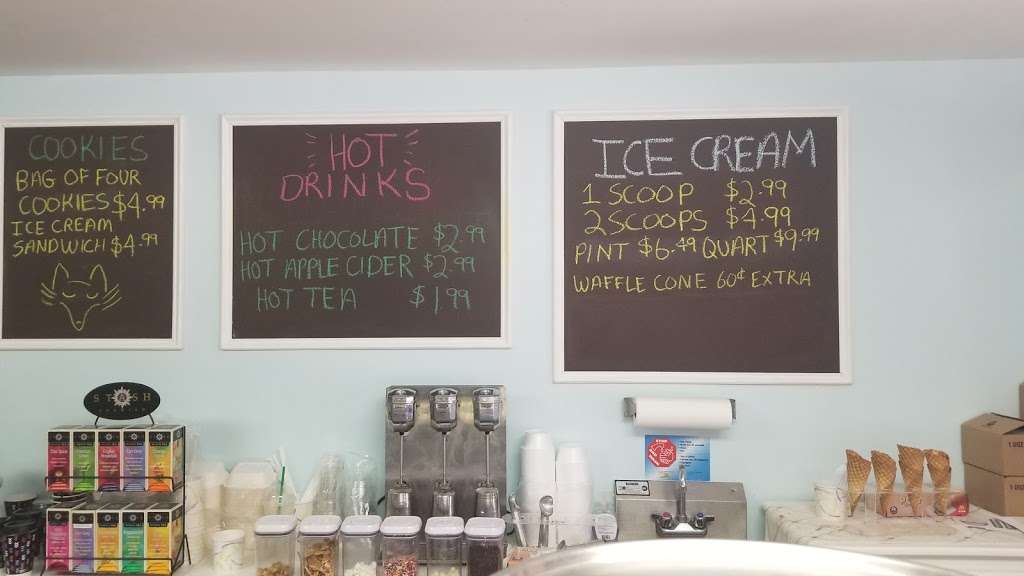 COOKIES
BAG OF FOUR
COOKIES $4.99
ICE CREAM
SANDWICH $4.99
HOT
DRINKS
HOT CHOCOLATE $2.99
HOT APPLE CIDER $2.99
HOT TEA $1.99
ICE CREAM
1 SCOOP $2.99
2 SCOOPS $4.99
PINT $6.49 QUART $9.99
WAFFLE CONE 60¢ EXTRA
STASH